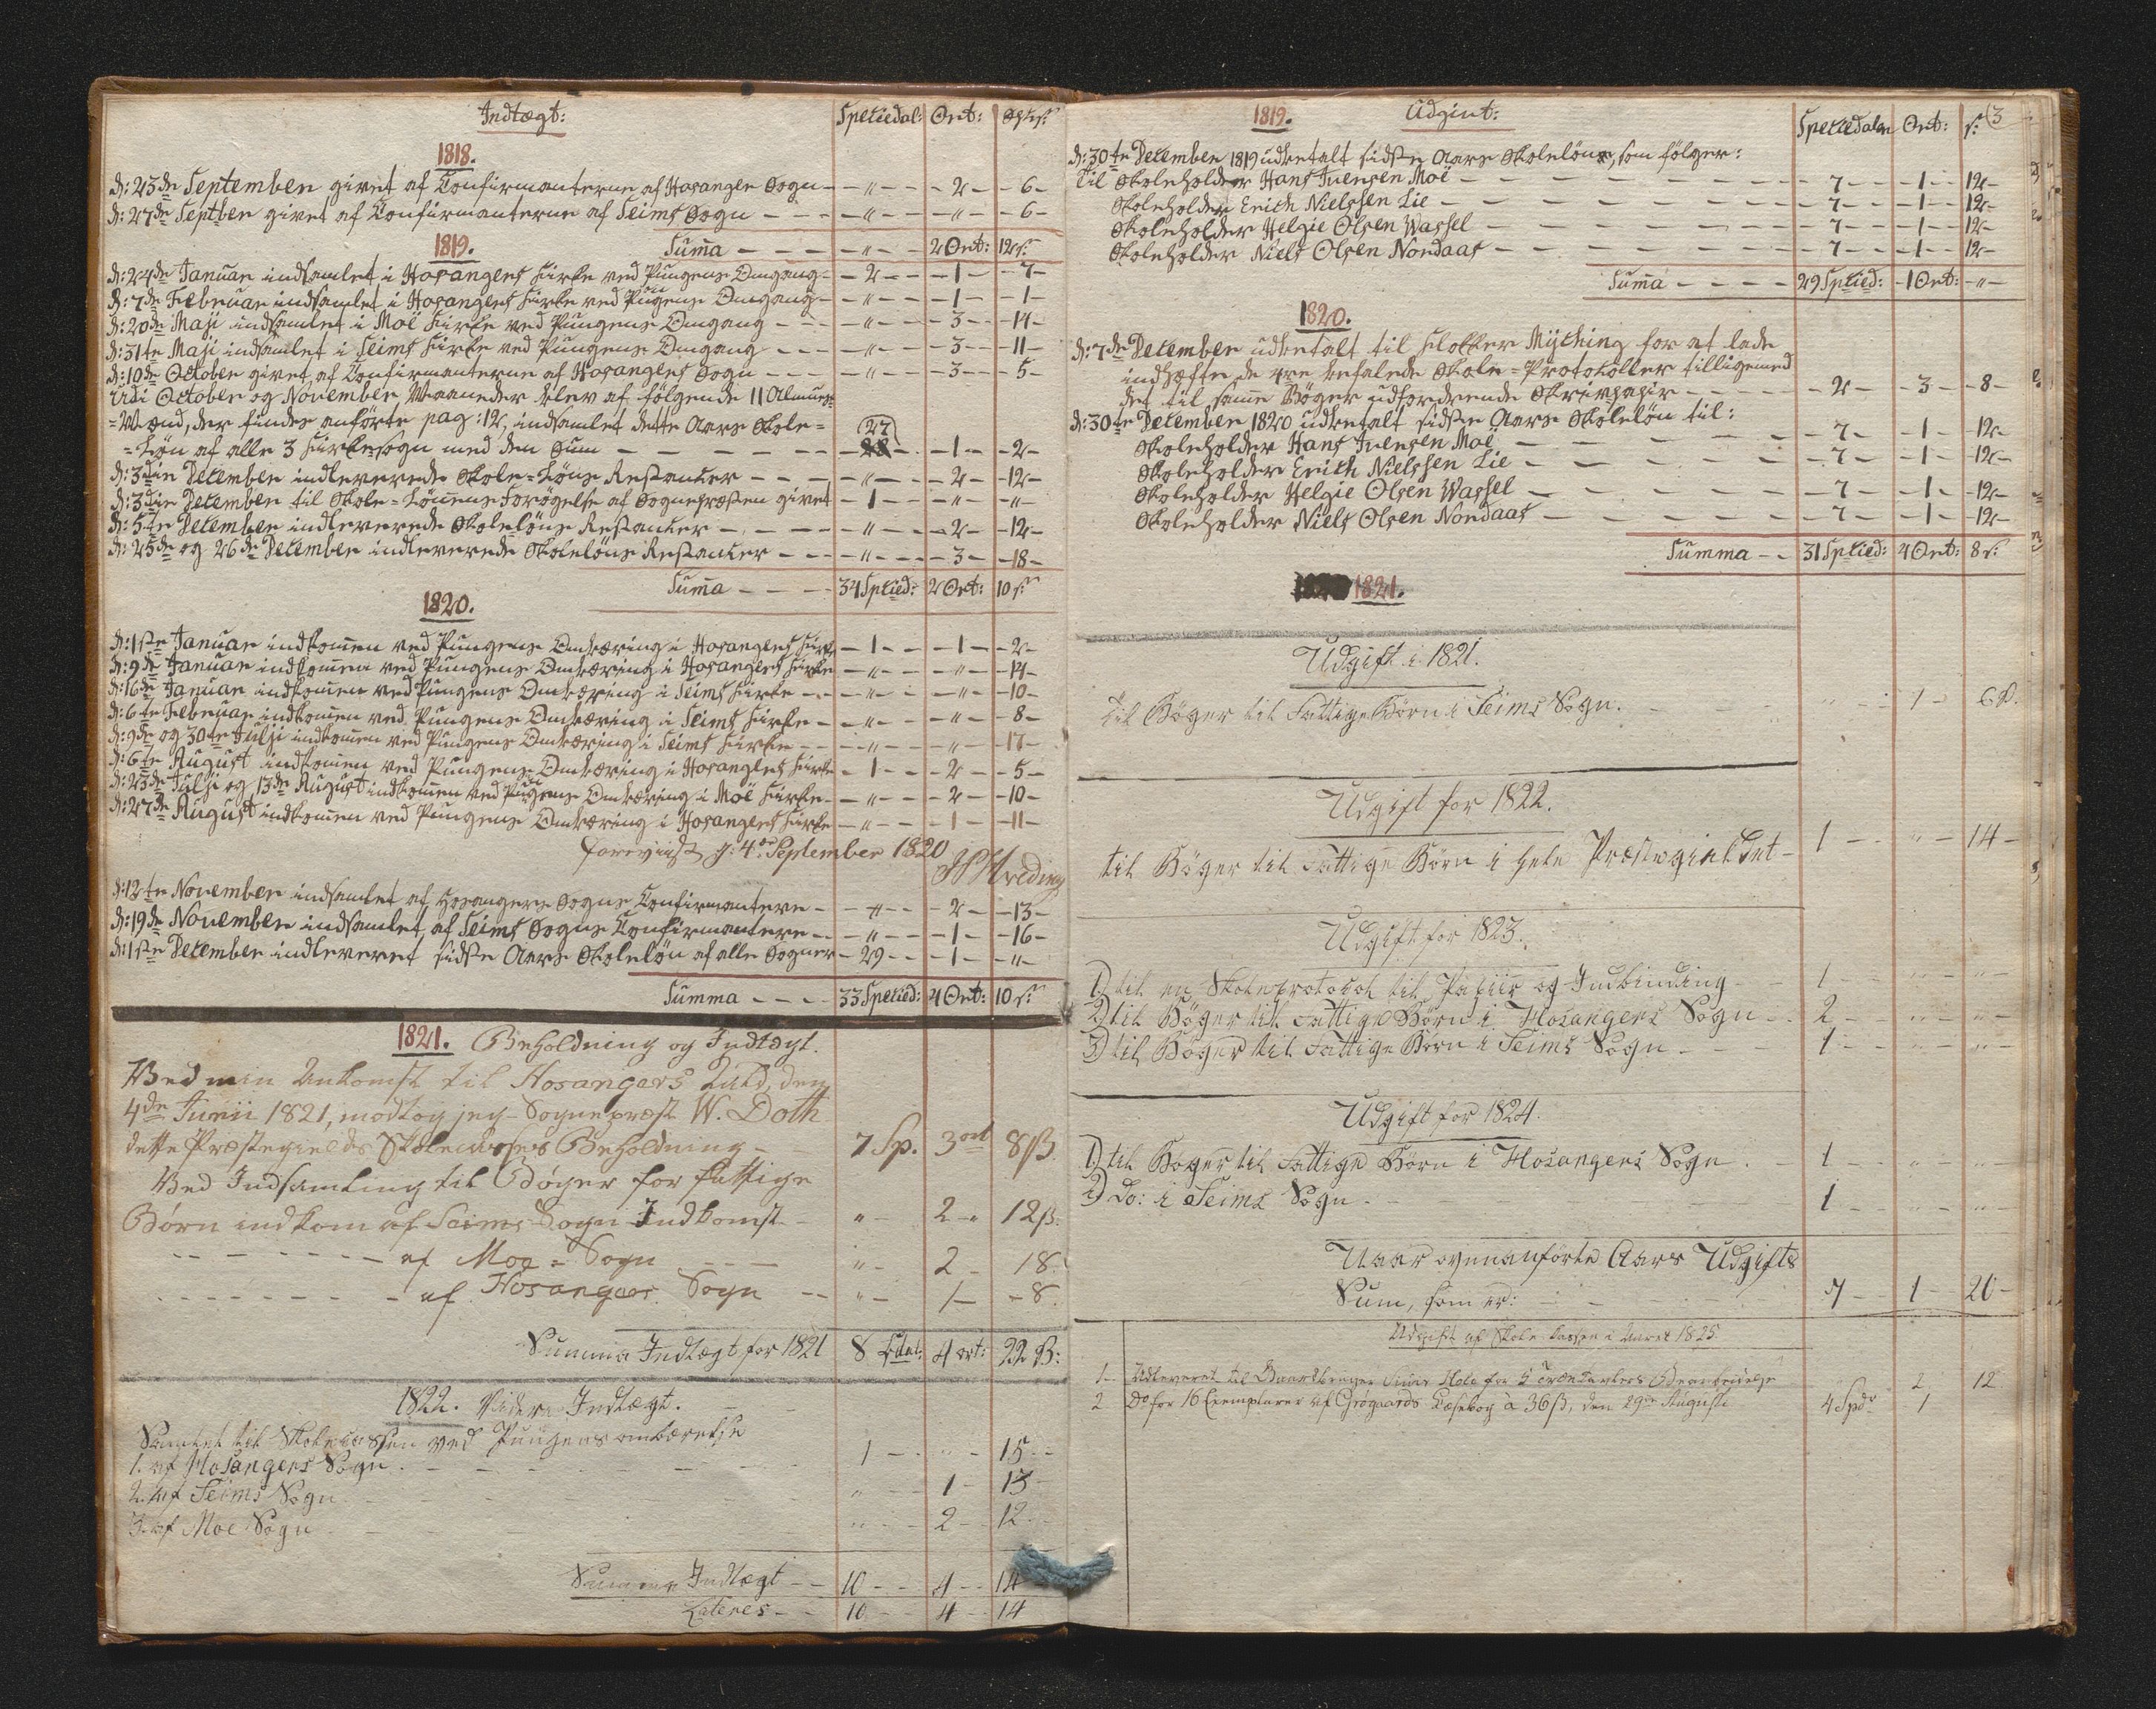 Indtægt: Speciedal: Ort: Skil:
1818.
d: 23de September givet af Confirmanterne af Hosanger Sogn - " - 2 - 6 -
d: 27de Septber givet af Confirmanterne af Seims Sogn - " - " - 6 -
1819. Suma - " - 2 Ort: 12 s:
d: 24de Januar indsamlet i Hosangers Kirke ved Pungens Omgang - 2 - 1 - 7 -
d: 7de Februar indsamlet i Hosangers Kirke ved Pungens Omgang - " - 1 - 1 -
d: 20de Maji indsamlet i Moë Kirke ved Pungens Omgang - " - 3 - 14 -
d: 31te Maji indsamlet i Seims Kirke ved Pungens Omgang - " - 3 - 11 -
d: 10de October givet af Confirmanterne af Hosangers Sogn - " - 3 - 5 -
Udi October og November Maaneder blev af følgende 11 Almues-
=Mænd, der findes anførte pag: 12, indsamlet dette Aars Skole=
=Løn af alle 3 Kirkesogn med den Sum - 27 - 1 - 2 -
d: 3die December indleverede Skole=Løns Restancer - " - 2 - 12 -
d: 3die December til Skole=Lønnens Forøgelse af Sognepræsten givet - 1 - " - "
d: 5te December indleverede Skoleløns Restancer - " - 2 - 12 -
d: 25de og 26de December indleverede Skoleløns Restancer - " - 3 - 18 -
Suma - 34 Spcied: 2 Ort: 10 s:
1820.
d: 1ste Januar indkomen ved Pungens Ombæring i Hosangers Kirke - 1 - 1 - 2 -
d: 9de Januar indkomen ved Pungens Ombæring i Hosangers Kirke - " - " - 14 -
d: 16de Januar indkomen ved Pungens Ombæring i Seims Kirke - " - " - 10 -
d: 6te Februar indkomen ved Pungens Ombæring i Seims Kirke - " - " - 8 -
d: 9de og 30te Julji indkomen ved Pungens Ombæring i Seims Kirke - " - " - 17 -
d: 6te August indkomen ved Pungens Ombæring i Hosangers Kirke - 1 - 2 - 5 -
d: 23de Julji og 13de August indkomen ved Pungens Ombæring i Moë Kirke - " - 2 - 10 -
d: 27de August indkomen ved Pungens Ombæring i Hosangers Kirke - " - 1 - 11 -
foreviist d: 4de September 1820
d: 12te November indsamlet af Hosangers Sogns Confirmantere - " - 2 - 13 -
d: 19de November indsamlet af Seims Sogns Confirmantere - " - 1 - 16 -
d: 1ste December indleveret sidste Aars Skoleløn af alle Sogner - 29 - 1 - "
Summa - 33 Specied: 4 Ort: 10 s:
1821. Beholdning og Indtægt.
Ved min Ankomst til Hosangers Kald, den
4de Junii 1821, modtog jeg Sognepræst W. Doth
dette Præstegields Skolecasses Beholdning - 7 Sp. 3 ort 8 ß.
Ved Indsamling til Bøger for fattige
Børn indkom af Seims Sogn Indkomst - " - 2 - 12 ß.
- af Moe = Sogn - " - 2 - 18.
- af Hosanger Sogn - " - 1 - 8.
Summa Indtægt for 1821 8 Spdal: 4 ort: 22 ß:
1822. Videre Indtægt.
Samlet til Skolecassen ved Pungens ombærelse
1. af Hosangers Sogn - 1 - " - 15 -
2. af Seims Sogn - " - 1 - 13 -
3. af Moe Sogn - " - 2 - 12 -
Summa Indtægt - 10 - 4 - 14
Lateres - 10 - 4 - 14
1819. Udgivt: Speciedaler Ort: s: 3
d: 30te December 1819 udbetalt sidste Aars Skoleløn, som følger:
Til Skoleholder Hans Iversen Moë - 7 - 1 - 12 -
Skoleholder Erich Nielssen Lie - 7 - 1 - 12 -
Skoleholder Helgie Olsen Wassel - 7 - 1 - 12 -
Skoleholder Niels Olsen Nordaas - 7 - 1 - 12 -
Suma - 29 Spcied: - 1 Ort: - "
1820.
d: 7de December udbetalt til Klokker Mÿching for at lade
indhæfte de befalede Skole=Protokoller tilligemed
det til samme Bøger udfordrende Skrivpapir - 2 - 3 - 8 -
d: 30te December 1820 udbetalt sidste Aars Skoleløn til:
Skoleholder Hans Iversen Moë - 7 - 1 - 12 -
Skoleholder Erich Nielssen Lie - 7 - 1 - 12 -
Skoleholder Helgie Olsen Wassel - 7 - 1 - 12 -
Skoleholder Niels Olsen Nordaas - 7 - 1 - 12 -
Summa - 31 Spcied: 4 Ort: 8 s:
1821.
Udgift i 1821.
til Bøger til Fattige Børn i Seims Sogn. - " - 1 - 6 ß.
Udgift for 1822.
til Bøger til Fattige Børn i hele Præstegieldet - 1 - " - 14 -
Udgift for 1823.
1) til en Skoleprotocol til Papiir og Indbinding - 1 - " - "
2) til Bøger til Fattige Børn i Hosangers Sogn - 2 - " - "
3) til Bøger til Fattige Børn i Seims Sogn - 1 - " - "
Udgift for 1824.
1) til Bøger til Fattige Børn i Hosangers Sogn - 1 - " - "
2) Do: i Seims Sogn - 1 - " - "
ovenanførte Aars Udgifts
Sum, som er: - 7 - 1 - 20 -
Udgift af Skole-Cassen i Aaret 1825
1. Udleveret til for 2, 12
2 Do for 16 Exemplarer af Grøgaards Læsebog à 36 ß, den 29de Augusti 4 Spdr 1